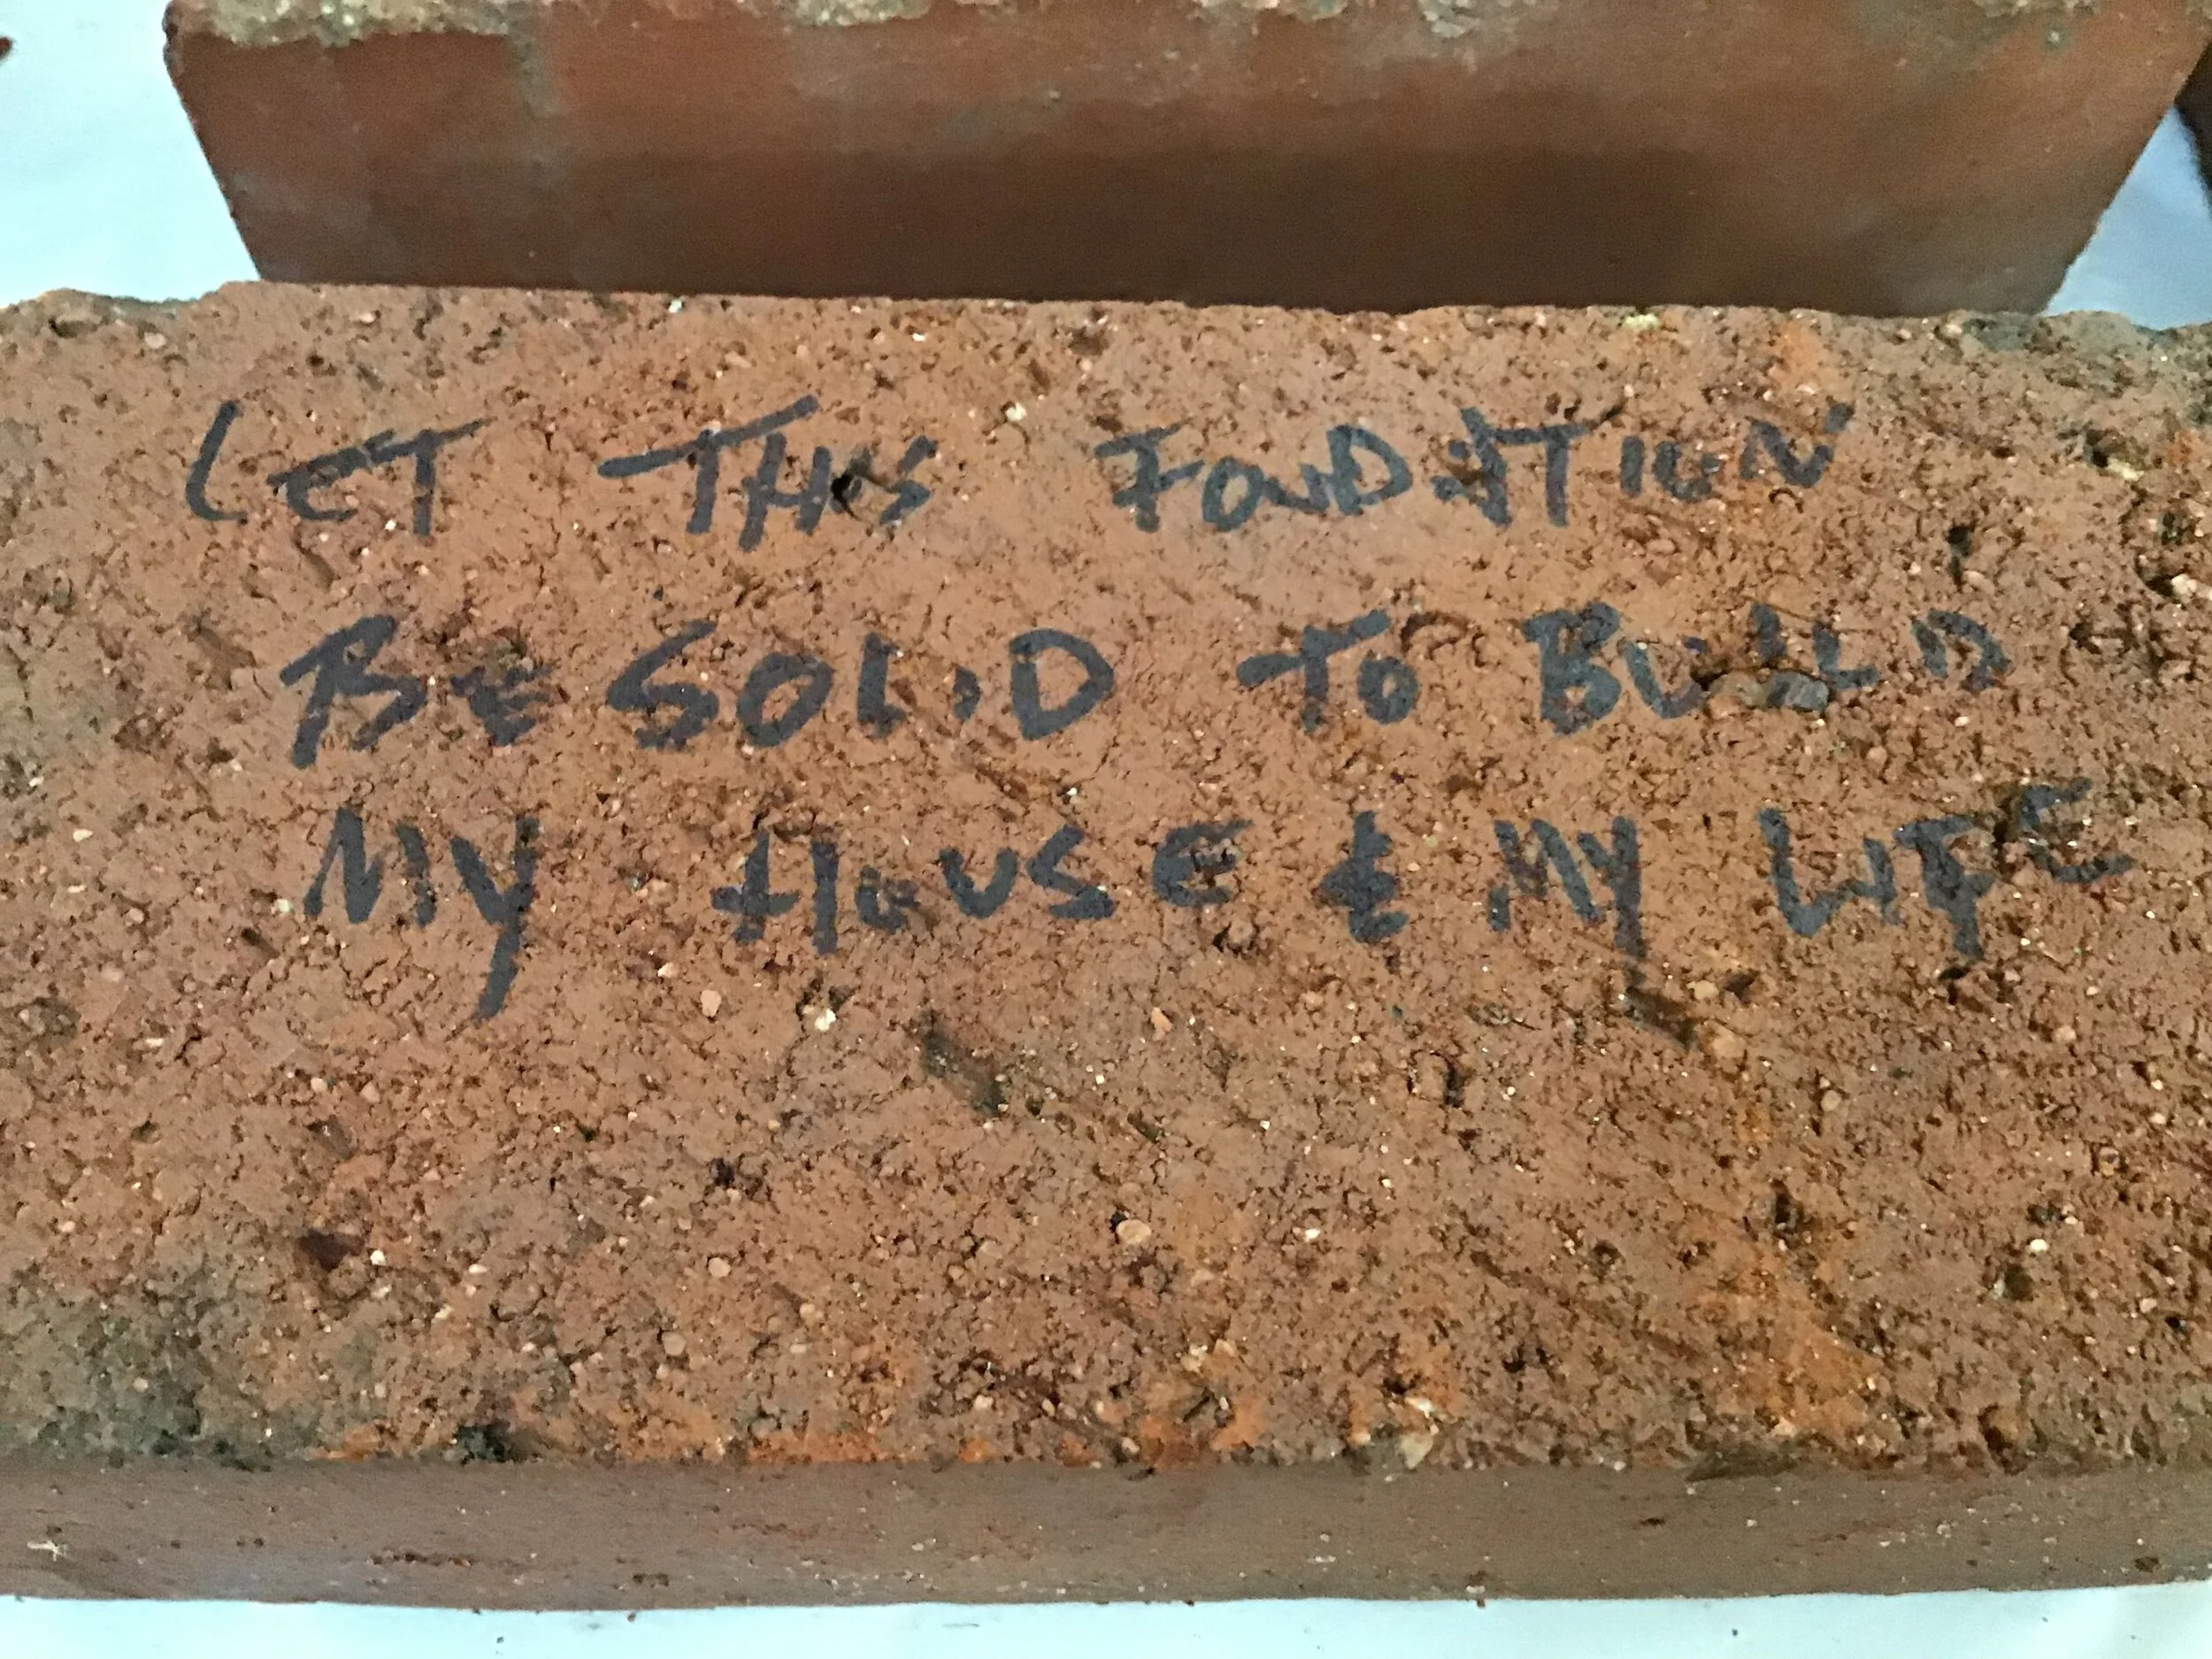 LET THIS FOUDATION
BE SOLID TO BUILD
MY HOUSE & MY LIFE